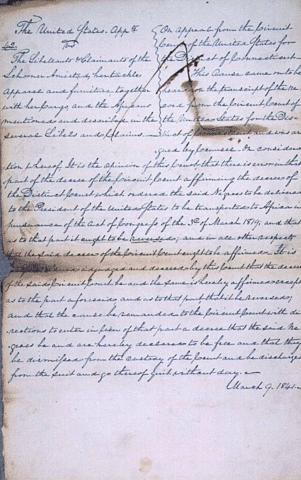 The United States. Appts
vs
The Libelants & Claimants of the
Schooner Amistad, her tackle,
apparel and furniture, together
with her cargo, and the Africans
mentioned and described in the
several Libels and Claims.
On appeal from the Circuit
Court of the United States for
the District of Connecticut.
This Cause came on to be
heard on the transcript of the re-
cord from the Circuit Court of
the United States for the Dis-
trict of and was ar-
gued by Counsel. On considera-
tion whereof, It is the opinion of this Court that there is error in that
part of the decree of the Circuit Court, affirming the decree of
the District Court which ordered the said Negroes to be delivered
to the President of the United States to be transported to Africa in
pursuance of the act of Congress of the 3d of March 1819; and that
as to that part it ought to be reversed; and in all other respects
that the said decree of the Circuit Court ought to be affirmed. It is
ordered adjudged and decreed by this Court that the decree
of the said Circuit Court be and the same is hereby affirmed except
as to the part aforesaid and as to that part that it be reversed;
and that the cause be remanded to the Circuit Court with di-
rections to enter in lieu of that part a decree that the said Ne-
groes be and are hereby declared to be free and that they
be dismissed from the custody of the Court and be discharged
from the suit and go thereof quit without day.
March 9. 1841